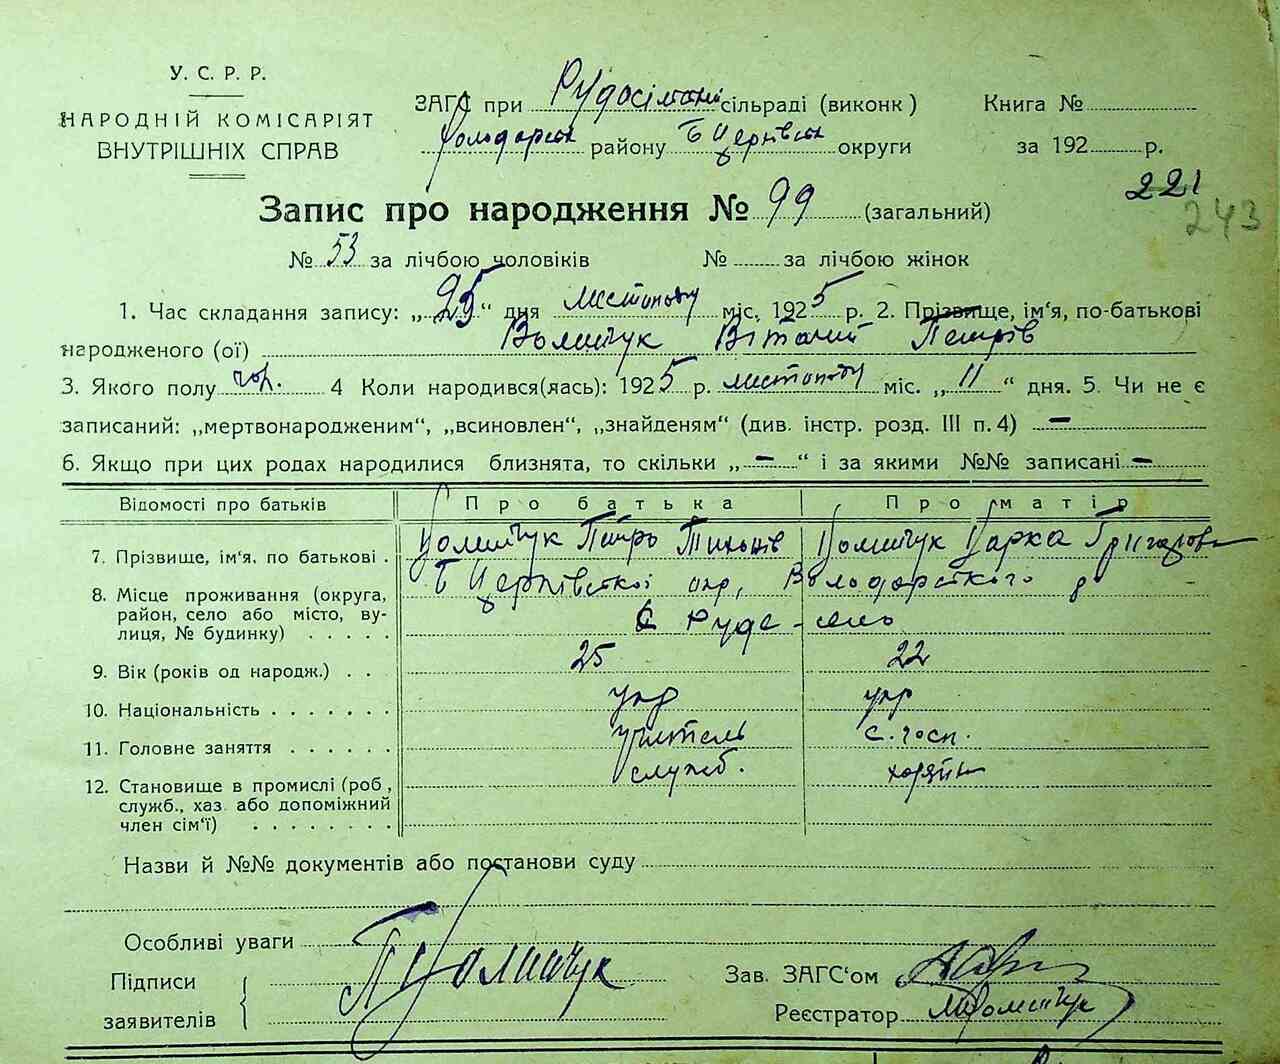 У. С. Р. Р.
НАРОДНІЙ КОМІСАРІЯТ
ВНУТРІШНІХ СПРАВ
ЗАГС при сільраді (виконк )
Володарськ району Б Церківськ округи
Книга №
за 192 р.
221
243
Запис про народження № 99 (загальний)
№ 53 за лічбою чоловіків № за лічбою жінок
1. Час складання запису: „25“ дня листопаду міс. 1925 р. 2. Прізвище, ім‘я, по-батькові
народженого (ої) Віталий Петрів
3. Якого полу чол. 4 Коли народився(лась): 1925 р. листопаду міс. „11“ дня. 5. Чи не є
записаний: „мертвонародженим“, „всиновлен“, „знайденям“ (див. інстр. розд. III п. 4) —
6. Якщо при цих родах народилися близнята, то скільки „—“ і за якими №№ записані —
Відомості про батьків Про батька Про матір
7. Прізвище, ім‘я, по батькові . Петро Тихонів Григорова
8. Місце проживання (округа, Б Церківської окр, Володарського р
район, село або місто, ву- с Руде-село
лиця, № будинку) . . . . .
9. Вік (років од народж.) . . 25 22
10. Національність . . . . . . . укр укр
11. Головне заняття . . . . . . учитель с. госп.
12. Становище в промислі (роб , служб. хазяйка
служб., хаз або допоміжний
член сім‘ї) . . . . . . . .
Назви й №№ документів або постанови суду
Особливі уваги
Підписи
заявителів
Зав. ЗАГС‘ом
Реєстратор